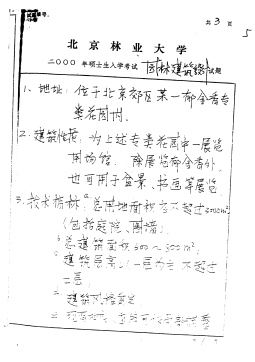 共 3 页
5
北京林业大学
二000 年硕士生入学考试 园林建筑设计 试题
1、地址：位于北京郊区某一郁金香专
类花园内。
2、建筑性质：为上述专类花园中一展览
用场馆。除展览郁金香外，
也可用于盆景、书画等展览
3、技术指标：a 总用地面积 不超过 3000m²
(包括庭院、围墙)
b 总建筑面积 600~800m²
c 建筑层高以一层为主 不超过
二层；
d 建筑风格自定